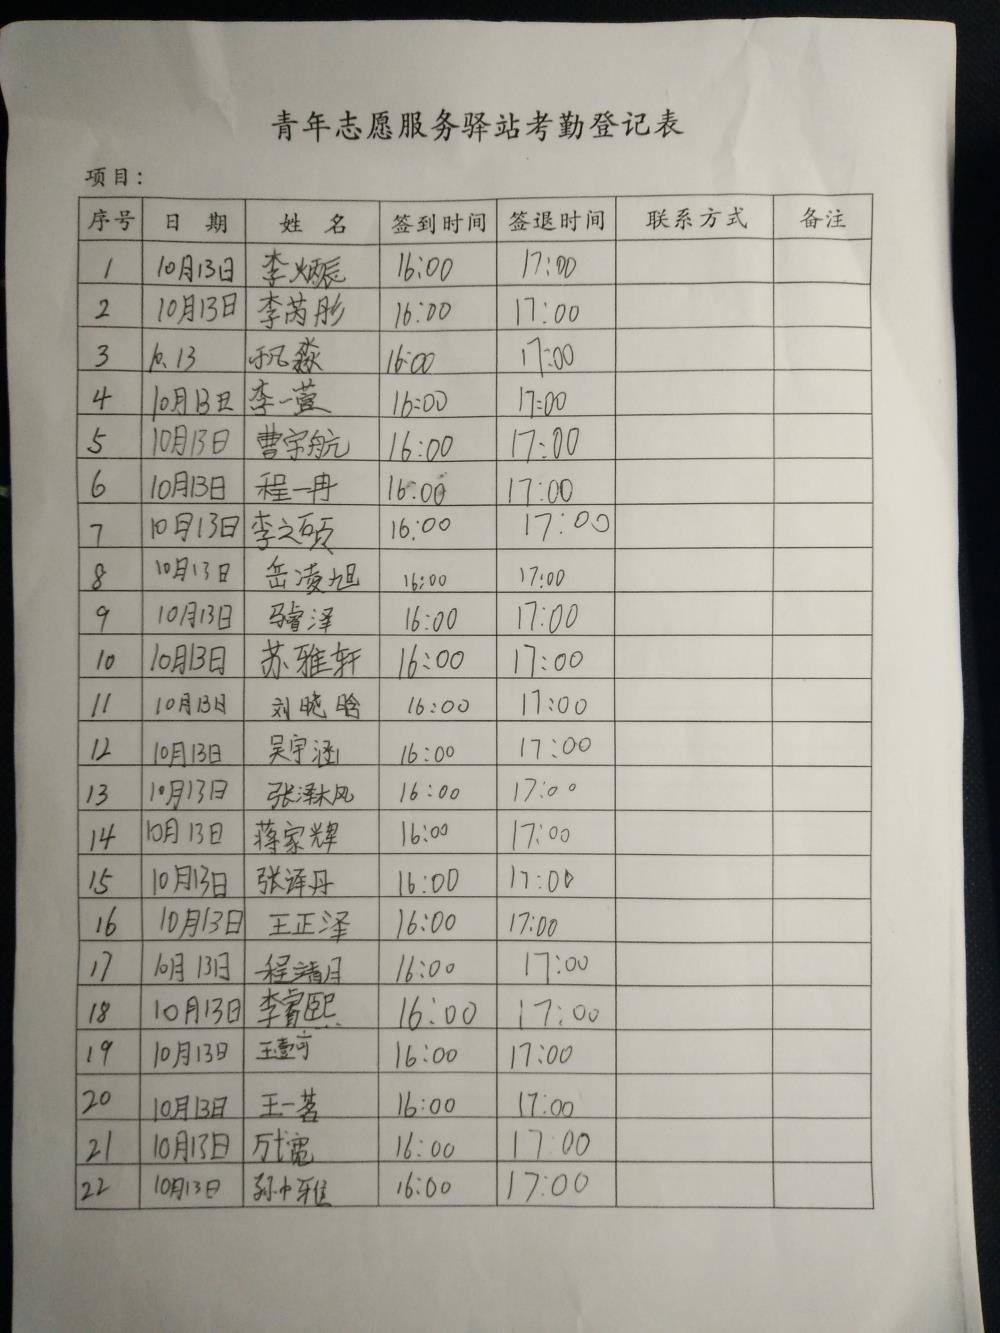 青年志愿服务驿站考勤登记表
项目：
序号 日 期 姓 名 签到时间 签退时间 联系方式 备注
1 10月13日 李炳辰 16:00 17:00
2 10月13日 李芮彤 16:00 17:00
3 10.13 淼 16:00 17:00
4 10月13日 李一萱 16:00 17:00
5 10月13日 曹宇航 16:00 17:00
6 10月13日 程一冉 16:00 17:00
7 10月13日 李之硕 16:00 17:00
8 10月13日 岳凌旭 16:00 17:00
9 10月13日 马睿泽 16:00 17:00
10 10月13日 苏雅轩 16:00 17:00
11 10月13日 刘晓晗 16:00 17:00
12 10月13日 吴宇涵 16:00 17:00
13 10月13日 张泽林风 16:00 17:00
14 10月13日 蒋家辉 16:00 17:00
15 10月13日 张译丹 16:00 17:00
16 10月13日 王正泽 16:00 17:00
17 10月13日 程靖月 16:00 17:00
18 10月13日 李睿熙 16:00 17:00
19 10月13日 王 16:00 17:00
20 10月13日 王一茗 16:00 17:00
21 10月13日 万宽 16:00 17:00
22 10月13日 孙巾雅 16:00 17:00